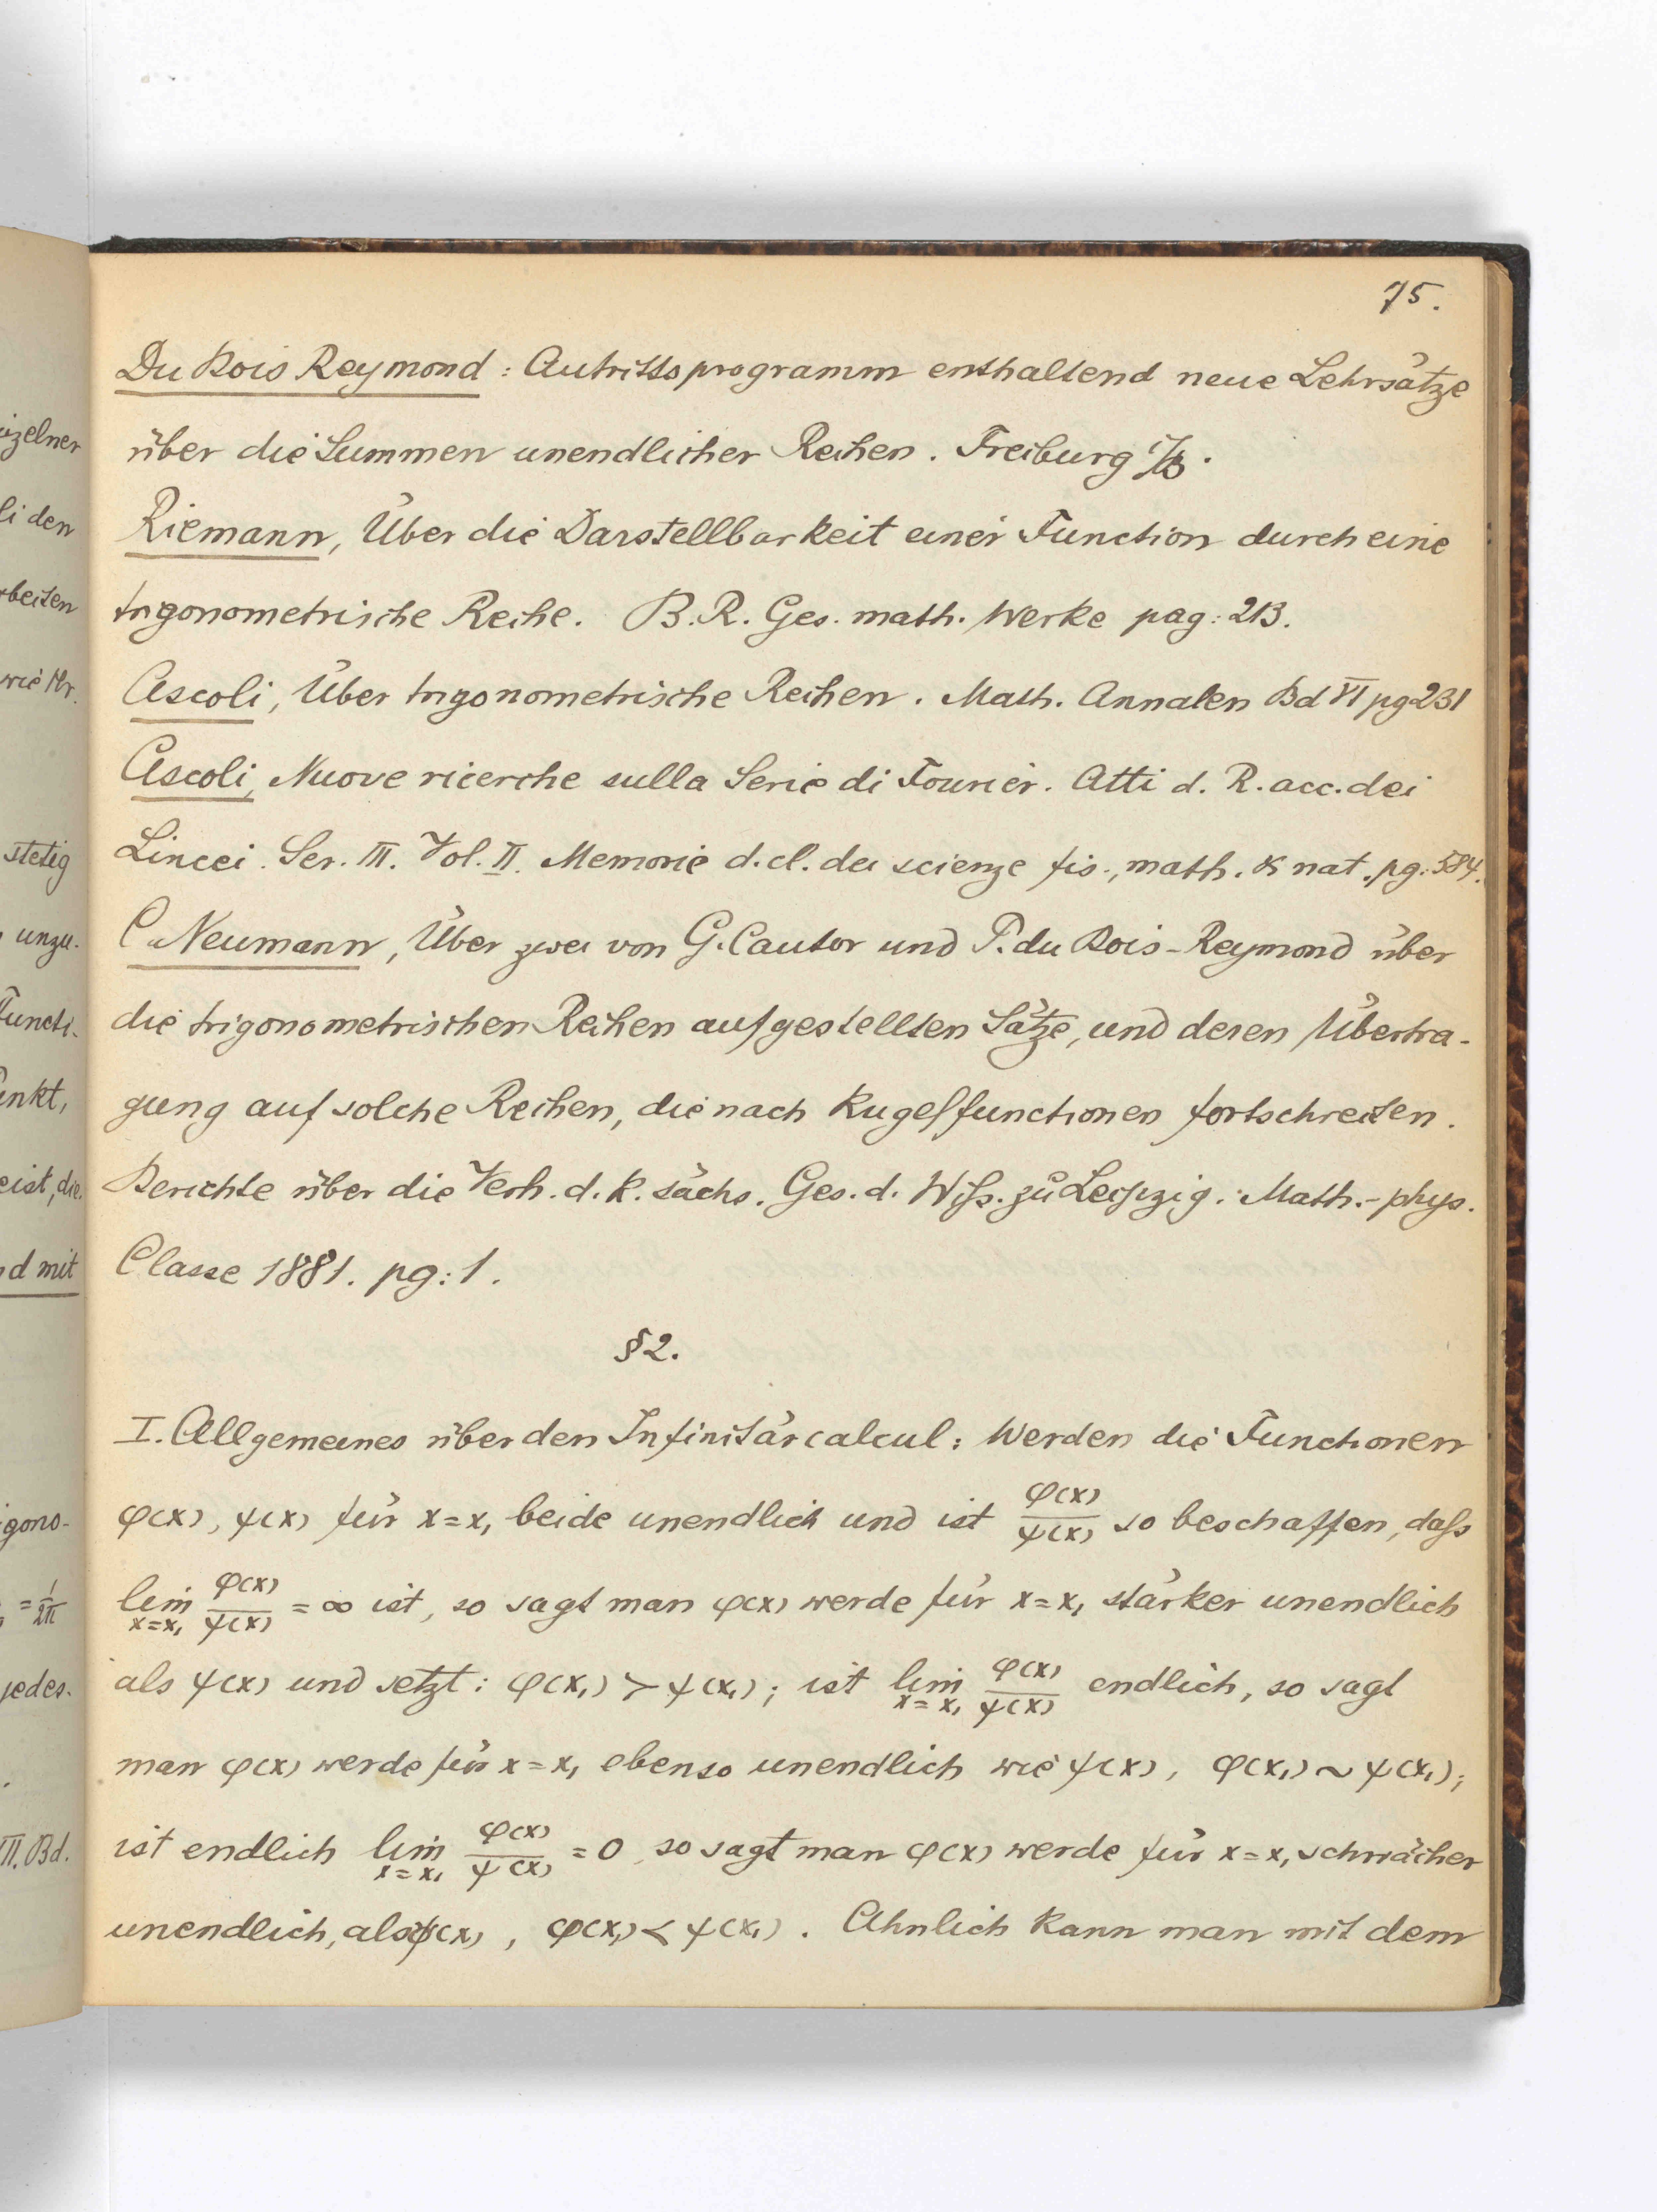 75.
izelner
li den
rbeiten
wie Hr.
stetig
unzu-
Functi-
unkt,
eist, die
d mit
igono-
= 1/2π
jedes-
III. Bd.
Du Bois Reymond : Antrittsprogramm enthaltend neue Lehrsätze
über die Summen unendlicher Reihen. Freiburg i/B.
Riemann, Über die Darstellbarkeit einer Function durch eine
trigonometrische Reihe. B. R. Ges. math. Werke pag: 213.
Ascoli, Über trigonometrische Reihen. Math. Annalen Bd VI pg 231
Ascoli, Nuove ricerche sulla Serie di Fourier. Atti d. R. acc. dei
Lincei. Ser. III. Vol. II. Memorie d. cl. dei scienze fis., math. & nat. pg: 584.
C. Neumann, Über zwei von G. Cantor und P. du Bois-Reymond über
die trigonometrischen Reihen aufgestellten Sätze, und deren Übertra-
gung auf solche Reihen, die nach Kugelfunctionen fortschreiten.
Berichte über die Verh. d. k. sächs. Ges. d. Wiß. zu Leipzig. Math.-phys.
Classe 1881. pg: 1.
§2.
I. Allgemeines über den Infinitärcalcul: Werden die Functionen
φ(x), ψ(x) für x=x₁ beide unendlich und ist φ(x)/ψ(x) so beschaffen, daß
lim x=x₁ φ(x)/ψ(x) = ∞ ist, so sagt man φ(x) werde für x=x₁ stärker unendlich
als ψ(x) und setzt: φ(x₁) > ψ(x₁); ist lim x=x₁ φ(x)/ψ(x) endlich, so sagt
man φ(x) werde für x=x₁ ebenso unendlich wie ψ(x), φ(x₁) ~ ψ(x₁);
ist endlich lim x=x₁ φ(x)/ψ(x) = 0, so sagt man φ(x) werde für x=x₁ schwächer
unendlich, als ψ(x), φ(x₁) < ψ(x₁). Ähnlich kann man mit dem